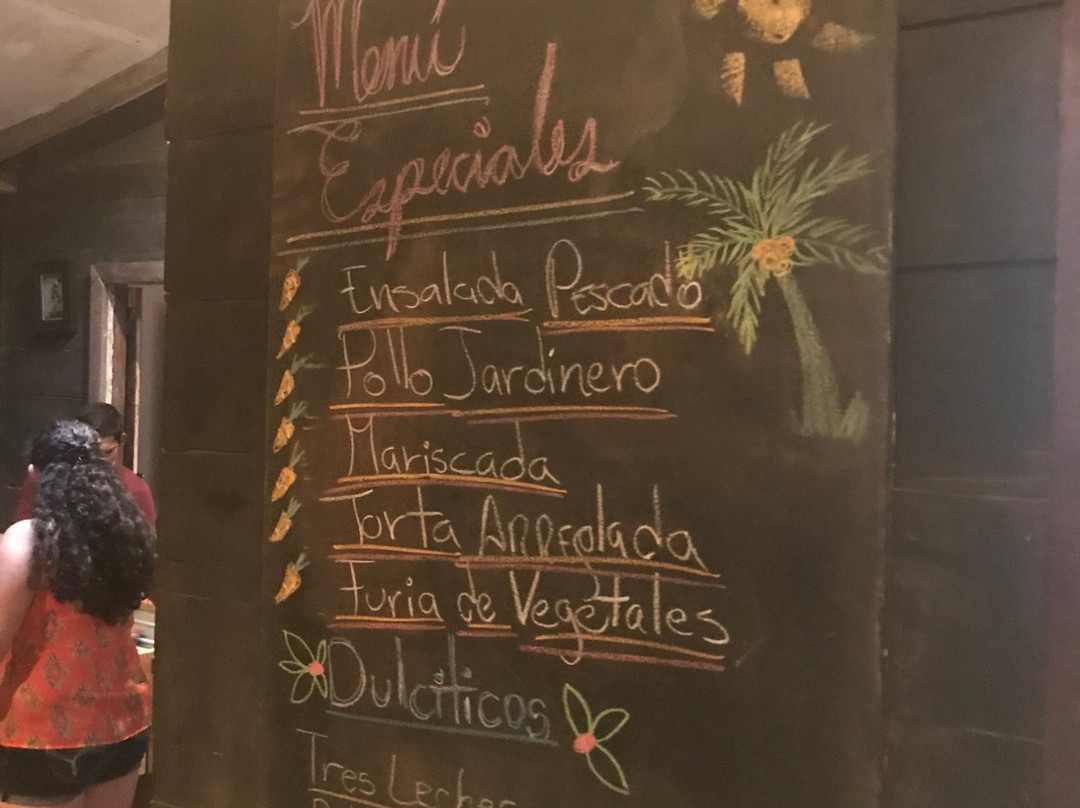 Menú
Especiales
Ensalada Pescado
Pollo Jardinero
Mariscada
Torta Arreglada
Furia de Vegetales
Dulciticos
Tres Leches